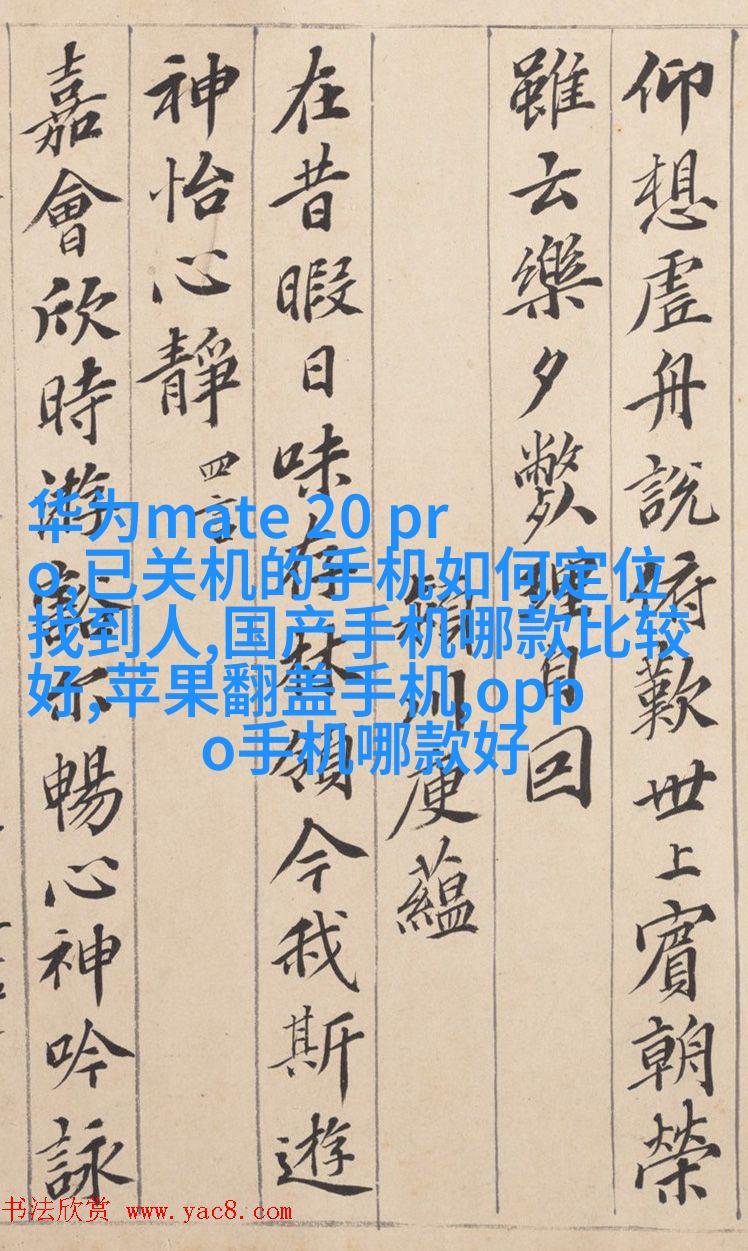 仰想虗舟說俯歎世上賓朝榮
雖云樂夕斃理自回
潁川庾蘊
在昔暇日味存林嶺今我斯遊
神怡心靜 四言
嘉會欣時游豁尔暢心神吟詠
华为mate 20 pr
o,已关机的手机如何定位
找到人,国产手机哪款比较
好,苹果翻盖手机,opp
o手机哪款好
书法欣赏 www.yac8.com